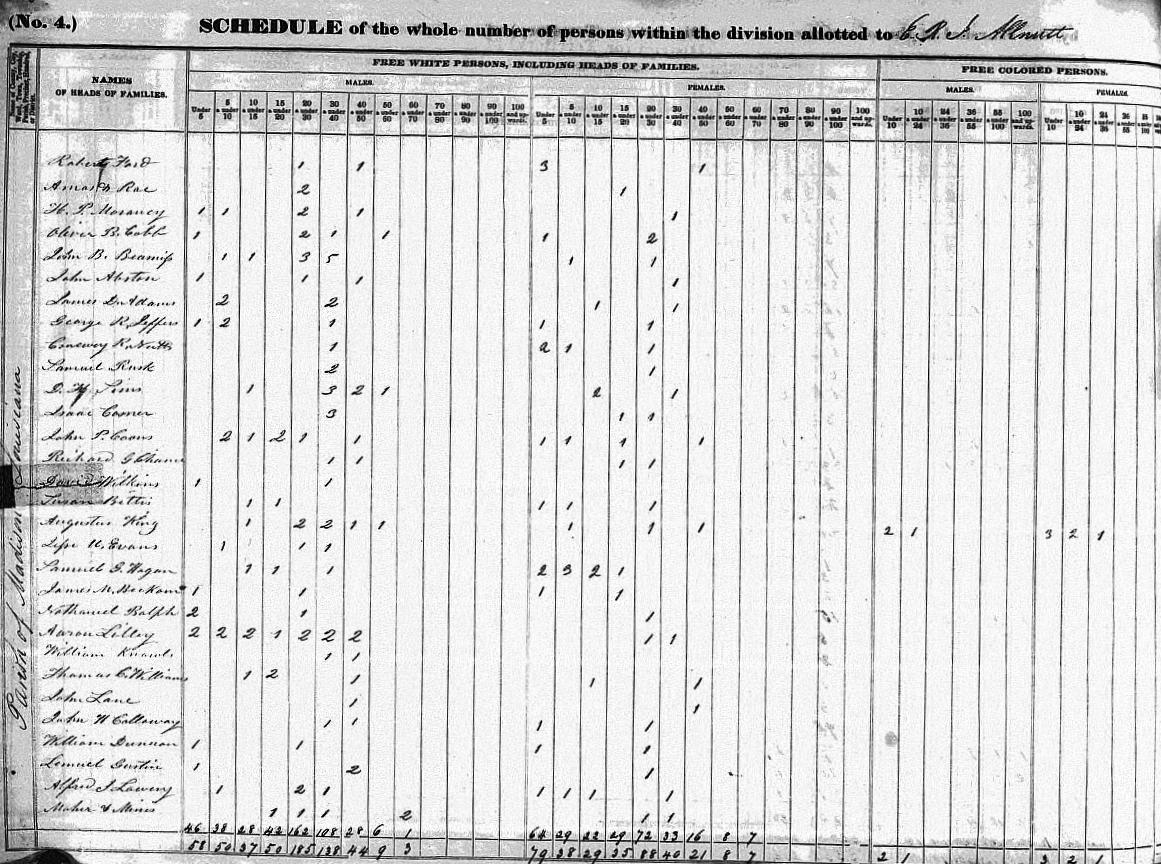 (No. 4.) SCHEDULE of the whole number of persons within the division allotted to
NAMES OF HEADS OF FAMILIES.
FREE WHITE PERSONS, INCLUDING HEADS OF FAMILIES.
FREE COLORED PERSONS.
MALES. FEMALES. MALES. FEMALES.
Under 5 5 & under 10 10 & under 15 15 & under 20 20 & under 30 30 & under 40 40 & under 50 50 & under 60 60 & under 70 70 & under 80 80 & under 90 90 & under 100 100 and upwards.
Under 5 5 & under 10 10 & under 15 15 & under 20 20 & under 30 30 & under 40 40 & under 50 50 & under 60 60 & under 70 70 & under 80 80 & under 90 90 & under 100 100 and upwards.
Under 10 10 & under 24 24 & under 36 36 & under 55 55 & under 100 100 and upwards.
Under 10 10 & under 24 24 & under 36
Parish of Madison Louisiana
Robert Ford 1 1 3 1
Amos Rae 2 1
H. P. Morancy 1 1 2 1 1
Oliver B. Cobb 1 2 1 1 1 2
John B. Beamiss 1 1 3 5 1 1
John Abston 1 1 1 1
James D. Adams 2 2 1 1
George R. Jeffers 1 2 1 1 1
1 2 1 1
Samuel Rusk 2 1
D. H. Sims 1 3 2 1 2 1
Isaac Comer 3 1 1
John P. Coons 2 1 2 1 1 1 1 1 1
Richard G. 1 1 1 1
David Wilkins 1 1
Susan Bettis 1 1 1 1 1
Augustus King 1 2 2 1 1 1 1 1 2 1 3 2 1
Evans 1 1 1
Samuel G. Hogan 1 1 1 2 3 2 1
James M. 1 1 1 1
Nathaniel Rolph 2 1 1
Aaron Lilley 2 2 2 1 2 2 2 1 1
William Knowls 1 1
Thomas C. Williams 1 2 1 1 1
John Lane 1 1
John W Calloway 1 1 1 1
William Dunnan 1 1 1 1
Lemuel Gustin 1 2 1
Alfred J. Lowery 1 2 1 1 1 1 1
Maher & Minis 1 1 1 2 1 1
46 38 28 42 162 108 28 6 1 64 29 22 29 72 33 16 8 7
58 50 37 50 185 138 44 9 3 79 38 29 35 88 40 21 8 7 2 1 3 2 1